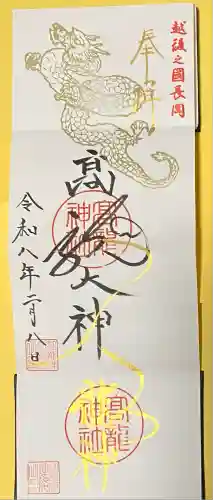 越後之國長岡
奉拝
高龍大神
高龍
神社
令和八年二月八日
高龍
神社